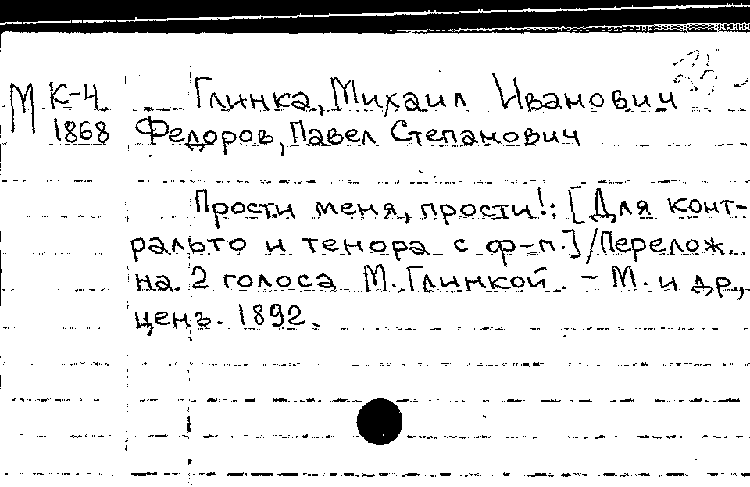 М К-4 Глинка, Михаил Иванович
1868 Федоров, Павел Степанович
Прости меня, прости!: [Для конт-
ральто и тенора с ф-п.] / Перелож.
на 2 голоса М. Глинкой. - М. и др.,
ценз. 1892.